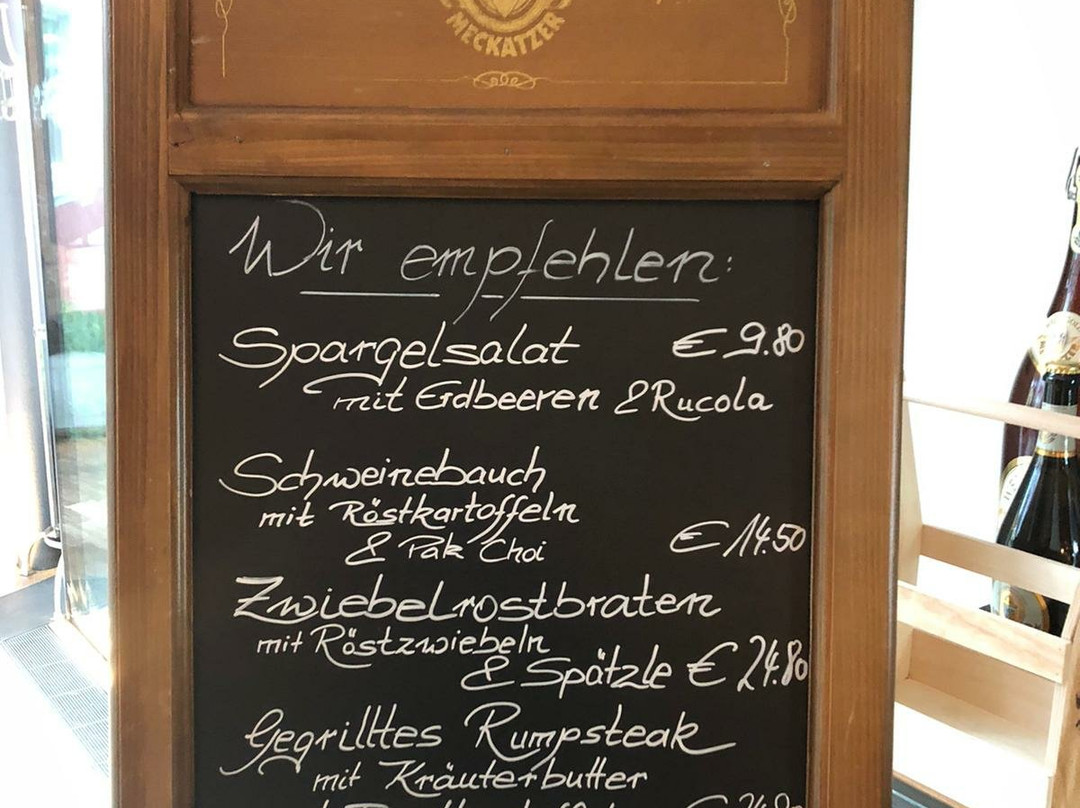 MECKATZER
Wir empfehlen:
Spargelsalat € 9.80
mit Erdbeeren & Rucola
Schweinebauch
mit Röstkartoffeln
& Pak Choi € 14.50
Zwiebelrostbraten
mit Röstzwiebeln
& Spätzle € 24.80
Gegrilltes Rumpsteak
mit Kräuterbutter